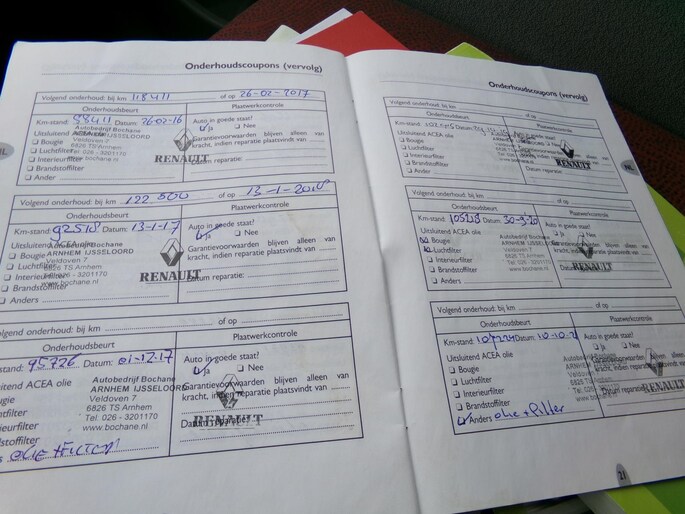 Onderhoudscoupons (vervolg)
Volgend onderhoud: bij km 118411 of op 26-02-2017
Onderhoudsbeurt Plaatwerkcontrole
Km-stand: 88411 Datum: 26-02-16 Auto in goede staat?
Ja Nee
Uitsluitend ACEA olie Autobedrijf Bochane
ARNHEM IJSSELOORD
Bougie Veldoven 7
Luchtfilter 6826 TS Arnhem
Interieurfilter Tel. 026 - 3201170
Brandstoffilter www.bochane.nl
Anders
Garantievoorwaarden blijven alleen van
kracht, indien reparatie plaatsvindt van
Datum reparatie:
RENAULT
Volgend onderhoud: bij km 122.500 of op 13-1-2018
Onderhoudsbeurt Plaatwerkcontrole
Km-stand: 92510 Datum: 13-1-17 Auto in goede staat?
Ja Nee
Uitsluitend ACEA olie Autobedrijf Bochane
Bougie ARNHEM IJSSELOORD
Luchtfilter Veldoven 7
Interieurfilter 6826 TS Arnhem
Brandstoffilter Tel. 026 - 3201170
Anders www.bochane.nl
Garantievoorwaarden blijven alleen van
kracht, indien reparatie plaatsvindt van
Datum reparatie:
RENAULT
Volgend onderhoud: bij km of op
Onderhoudsbeurt Plaatwerkcontrole
stand: 95726 Datum: 01-12-17 Auto in goede staat?
Ja Nee
Uitsluitend ACEA olie Autobedrijf Bochane
Bougie ARNHEM IJSSELOORD
Luchtfilter Veldoven 7
Interieurfilter 6826 TS Arnhem
Brandstoffilter Tel. 026 - 3201170
www.bochane.nl
Garantievoorwaarden blijven alleen van
kracht, indien reparatie plaatsvindt van
Datum reparatie:
RENAULT
Onderhoudscoupons (vervolg)
Volgend onderhoud: bij km of op
Onderhoudsbeurt Plaatwerkcontrole
Km-stand: Datum: Auto in goede staat?
Ja Nee
Uitsluitend ACEA olie
Bougie
Luchtfilter
Interieurfilter
Brandstoffilter
Anders
Garantievoorwaarden blijven alleen van
kracht, indien reparatie plaatsvindt van
RENAULT
NL
Volgend onderhoud: bij km of op
Onderhoudsbeurt Plaatwerkcontrole
Km-stand: Datum: Auto in goede staat?
Ja Nee
Uitsluitend ACEA olie Autobedrijf Bochane
Bougie ARNHEM IJSSELOORD
Luchtfilter Veldoven 7
Interieurfilter 6826 TS Arnhem
Brandstoffilter Tel. 026 - 3201170
Anders www.bochane.nl
Garantievoorwaarden blijven alleen van
kracht, indien reparatie plaatsvindt van
RENAULT
Volgend onderhoud: bij km of op
Onderhoudsbeurt Plaatwerkcontrole
Km-stand: Datum: Auto in goede staat?
Ja Nee
Uitsluitend ACEA olie
Bougie
Luchtfilter
Interieurfilter
Brandstoffilter
Anders olie + filter
Garantievoorwaarden blijven alleen van
kracht, indien reparatie plaatsvindt van
Datum reparatie:
RENAULT
21